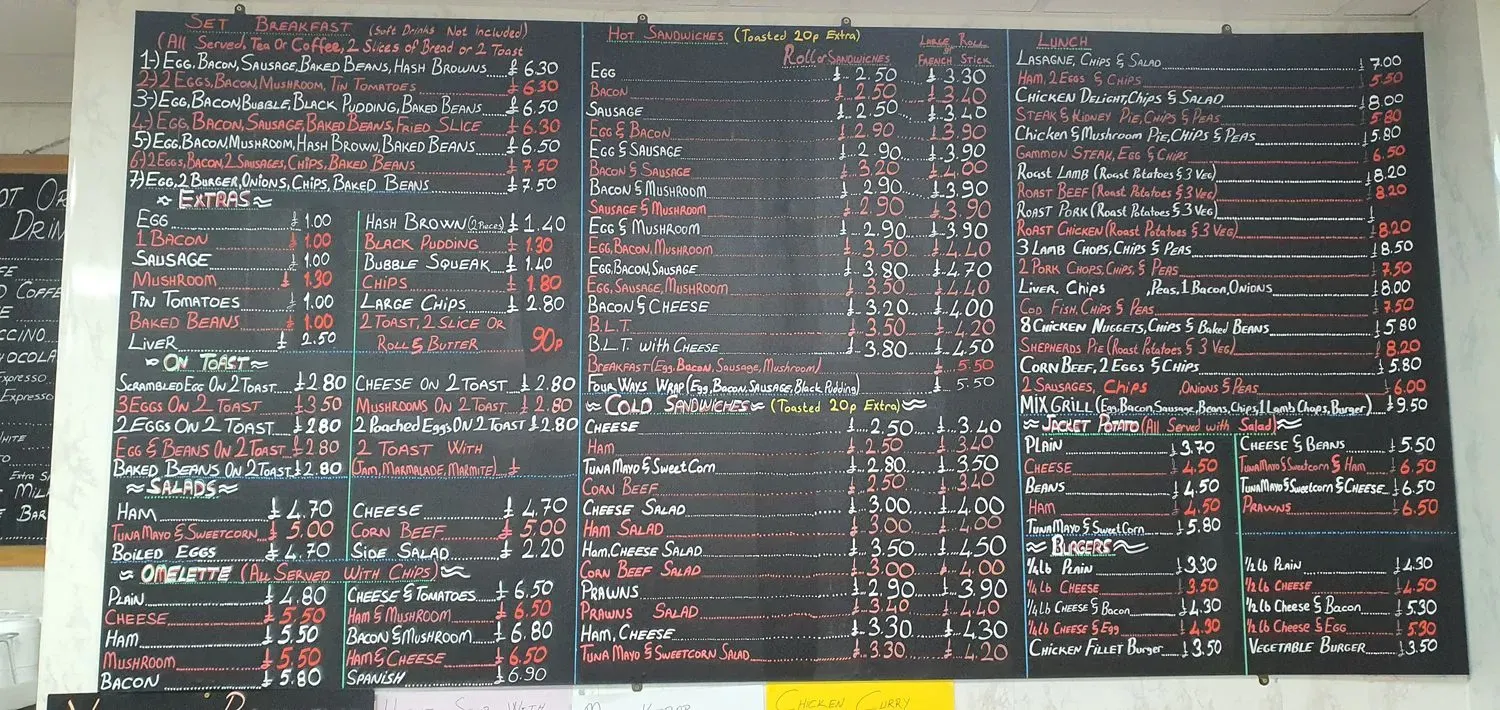 SET BREAKFAST (Soft Drinks Not included)
(ALL SERVED, TEA OR COFFEE, 2 SLICES OF BREAD OR 2 TOAST
1-) EGG, BACON, SAUSAGE, BAKED BEANS, HASH BROWNS £ 6.30
2-) 2 EGGS, BACON, MUSHROOM, TIN TOMATOES £ 6.30
3-) EGG, BACON, BUBBLE, BLACK PUDDING, BAKED BEANS £ 6.50
4-) EGG, BACON, SAUSAGE, BAKED BEANS, FRIED SLICE £ 6.30
5-) EGG, BACON, MUSHROOM, HASH BROWN, BAKED BEANS £ 6.50
6-) 2 EGGS, BACON, 2 SAUSAGES, CHIPS, BAKED BEANS £ 7.50
7-) EGG, 2 BURGER, ONIONS, CHIPS, BAKED BEANS £ 7.50
EXTRAS
EGG £ 1.00
1 BACON £ 1.00
SAUSAGE £ 1.00
MUSHROOM £ 1.30
TIN TOMATOES £ 1.00
BAKED BEANS £ 1.00
LIVER £ 2.50
HASH BROWN (2 Pieces) £ 1.40
BLACK PUDDING £ 1.30
BUBBLE SQUEAK £ 1.40
CHIPS £ 1.80
LARGE CHIPS £ 2.80
2 TOAST, 2 SLICE OR
ROLL & BUTTER 90p
ON TOAST
SCRAMBLED EGG ON 2 TOAST £ 2.80
3 EGGS ON 2 TOAST £ 3.50
2 EGGS ON 2 TOAST £ 2.80
EGG & BEANS ON 2 TOAST £ 2.80
BAKED BEANS ON 2 TOAST £ 2.80
CHEESE ON 2 TOAST £ 2.80
MUSHROOMS ON 2 TOAST £ 2.80
2 POACHED EGGS ON 2 TOAST £ 2.80
2 TOAST WITH
(JAM, MARMALADE, MARMITE) £
SALADS
HAM £ 4.70
TUNA MAYO & SWEETCORN £ 5.00
BOILED EGGS £ 4.70
CHEESE £ 4.70
CORN BEEF £ 5.00
SIDE SALAD £ 2.20
OMELETTE (ALL SERVED WITH CHIPS)
PLAIN £ 4.80
CHEESE £ 5.50
HAM £ 5.50
MUSHROOM £ 5.50
BACON £ 5.80
CHEESE & TOMATOES £ 6.50
HAM & MUSHROOM £ 6.50
BACON & MUSHROOM £ 6.80
HAM & CHEESE £ 6.50
SPANISH £ 6.90
HOT SANDWICHES (TOASTED 20p EXTRA)
ROLL or SANDWICHES
LARGE ROLL
or
FRENCH STICK
EGG £ 2.50 £ 3.30
BACON £ 2.50 £ 3.40
SAUSAGE £ 2.50 £ 3.40
EGG & BACON £ 2.90 £ 3.90
EGG & SAUSAGE £ 2.90 £ 3.90
BACON & SAUSAGE £ 3.20 £ 4.00
BACON & MUSHROOM £ 2.90 £ 3.90
SAUSAGE & MUSHROOM £ 2.90 £ 3.90
EGG & MUSHROOM £ 2.90 £ 3.90
EGG, BACON, MUSHROOM £ 3.50 £ 4.40
EGG, BACON, SAUSAGE £ 3.80 £ 4.70
EGG, SAUSAGE, MUSHROOM £ 3.50 £ 4.40
BACON & CHEESE £ 3.20 £ 4.00
B.L.T. £ 3.50 £ 4.20
B.L.T. WITH CHEESE £ 3.80 £ 4.50
BREAKFAST (Egg, Bacon, Sausage, Mushroom) £ 5.50
FOUR WAYS WRAP (Egg, BACON, SAUSAGE, Black Pudding) £ 5.50
COLD SANDWICHES (TOASTED 20p EXTRA)
CHEESE £ 2.50 £ 3.40
HAM £ 2.50 £ 3.40
TUNA MAYO & SWEETCORN £ 2.80 £ 3.50
CORN BEEF £ 2.50 £ 3.40
CHEESE SALAD £ 3.00 £ 4.00
HAM SALAD £ 3.00 £ 4.00
HAM, CHEESE SALAD £ 3.50 £ 4.50
CORN BEEF SALAD £ 3.00 £ 4.00
PRAWNS £ 2.90 £ 3.90
PRAWNS SALAD £ 3.40 £ 4.40
HAM, CHEESE £ 3.30 £ 4.30
TUNA MAYO & SWEETCORN SALAD £ 3.30 £ 4.20
LUNCH
LASAGNE, CHIPS & SALAD £ 7.00
HAM, 2 EGGS & CHIPS £ 5.50
CHICKEN DELIGHT, CHIPS & SALAD £ 8.00
STEAK & KIDNEY PIE, CHIPS & PEAS £ 5.80
CHICKEN & MUSHROOM PIE, CHIPS & PEAS £ 5.80
GAMMON STEAK, EGG & CHIPS £ 6.50
ROAST LAMB (Roast Potatoes & 3 VEG) £ 8.20
ROAST BEEF (Roast Potatoes & 3 VEG) £ 8.20
ROAST PORK (Roast Potatoes & 3 VEG) £
ROAST CHICKEN (Roast Potatoes & 3 VEG) £ 8.20
3 LAMB CHOPS, CHIPS & PEAS £ 8.50
2 PORK CHOPS, CHIPS, & PEAS £ 7.50
LIVER, CHIPS ,PEAS, 1 BACON, ONIONS £ 8.00
COD FISH, CHIPS & PEAS £ 7.50
8 CHICKEN NUGGETS, CHIPS & BAKED BEANS £ 5.80
SHEPHERDS PIE (Roast Potatoes & 3 VEG) £ 8.20
CORN BEEF, 2 EGGS & CHIPS £ 5.80
2 SAUSAGES, CHIPS ,ONIONS & PEAS £ 6.00
MIX GRILL (Egg, Bacon, Sausage, Beans, Chips, 1 Lamb Chops, Burger) £ 9.50
JACKET POTATO (All Served with Salad)
PLAIN £ 3.70
CHEESE £ 4.50
BEANS £ 4.50
HAM £ 4.50
TUNA MAYO & SWEETCORN £ 5.80
CHEESE & BEANS £ 5.50
TUNA MAYO & SWEETCORN & HAM £ 6.50
TUNA MAYO & SWEETCORN & CHEESE £ 6.50
PRAWNS £ 6.50
BURGERS
1/4 lb PLAIN £ 3.30
1/4 lb CHEESE £ 3.50
1/4 lb CHEESE & BACON £ 4.30
1/4 lb CHEESE & EGG £ 4.30
CHICKEN FILLET BURGER £ 3.50
1/2 lb PLAIN £ 4.30
1/2 lb CHEESE £ 4.50
1/2 lb CHEESE & BACON £ 5.30
1/2 lb CHEESE & EGG £ 5.30
VEGETABLE BURGER £ 3.50
CHICKEN CURRY